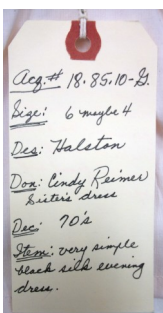 Acq.# 18.85.10-G.
Size: 6 maybe 4
Des: Halston
Don: Cindy Reimer
Sister's dress
Dec: 70's
Item: very simple
black silk evening
dress.